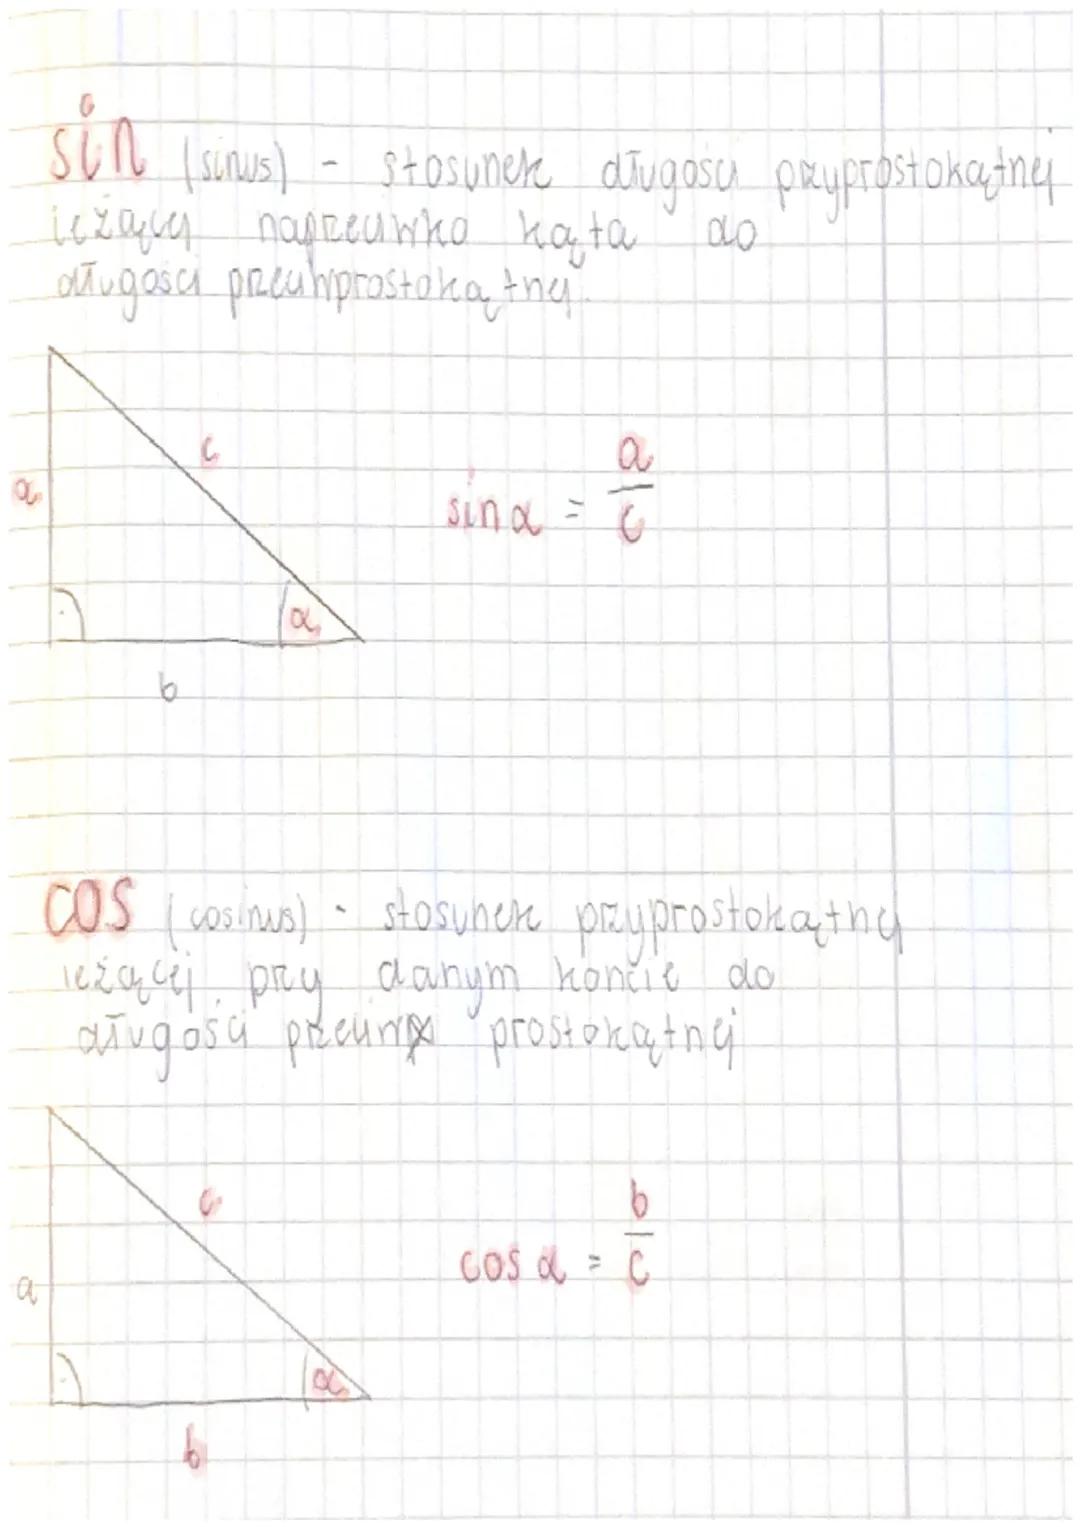 sin (sinus) - stosunek długości przyprostokątnej
leżącej naprzeciwko kąta do
długości przeciwprostokątnej.
c
a
sin α = a/c
α
b
cos (cosinus) - stosunek przyprostokątnej
leżącej przy danym koncie do
długości przeciw prostokątnej
c
a
cos α = b/c
α
b